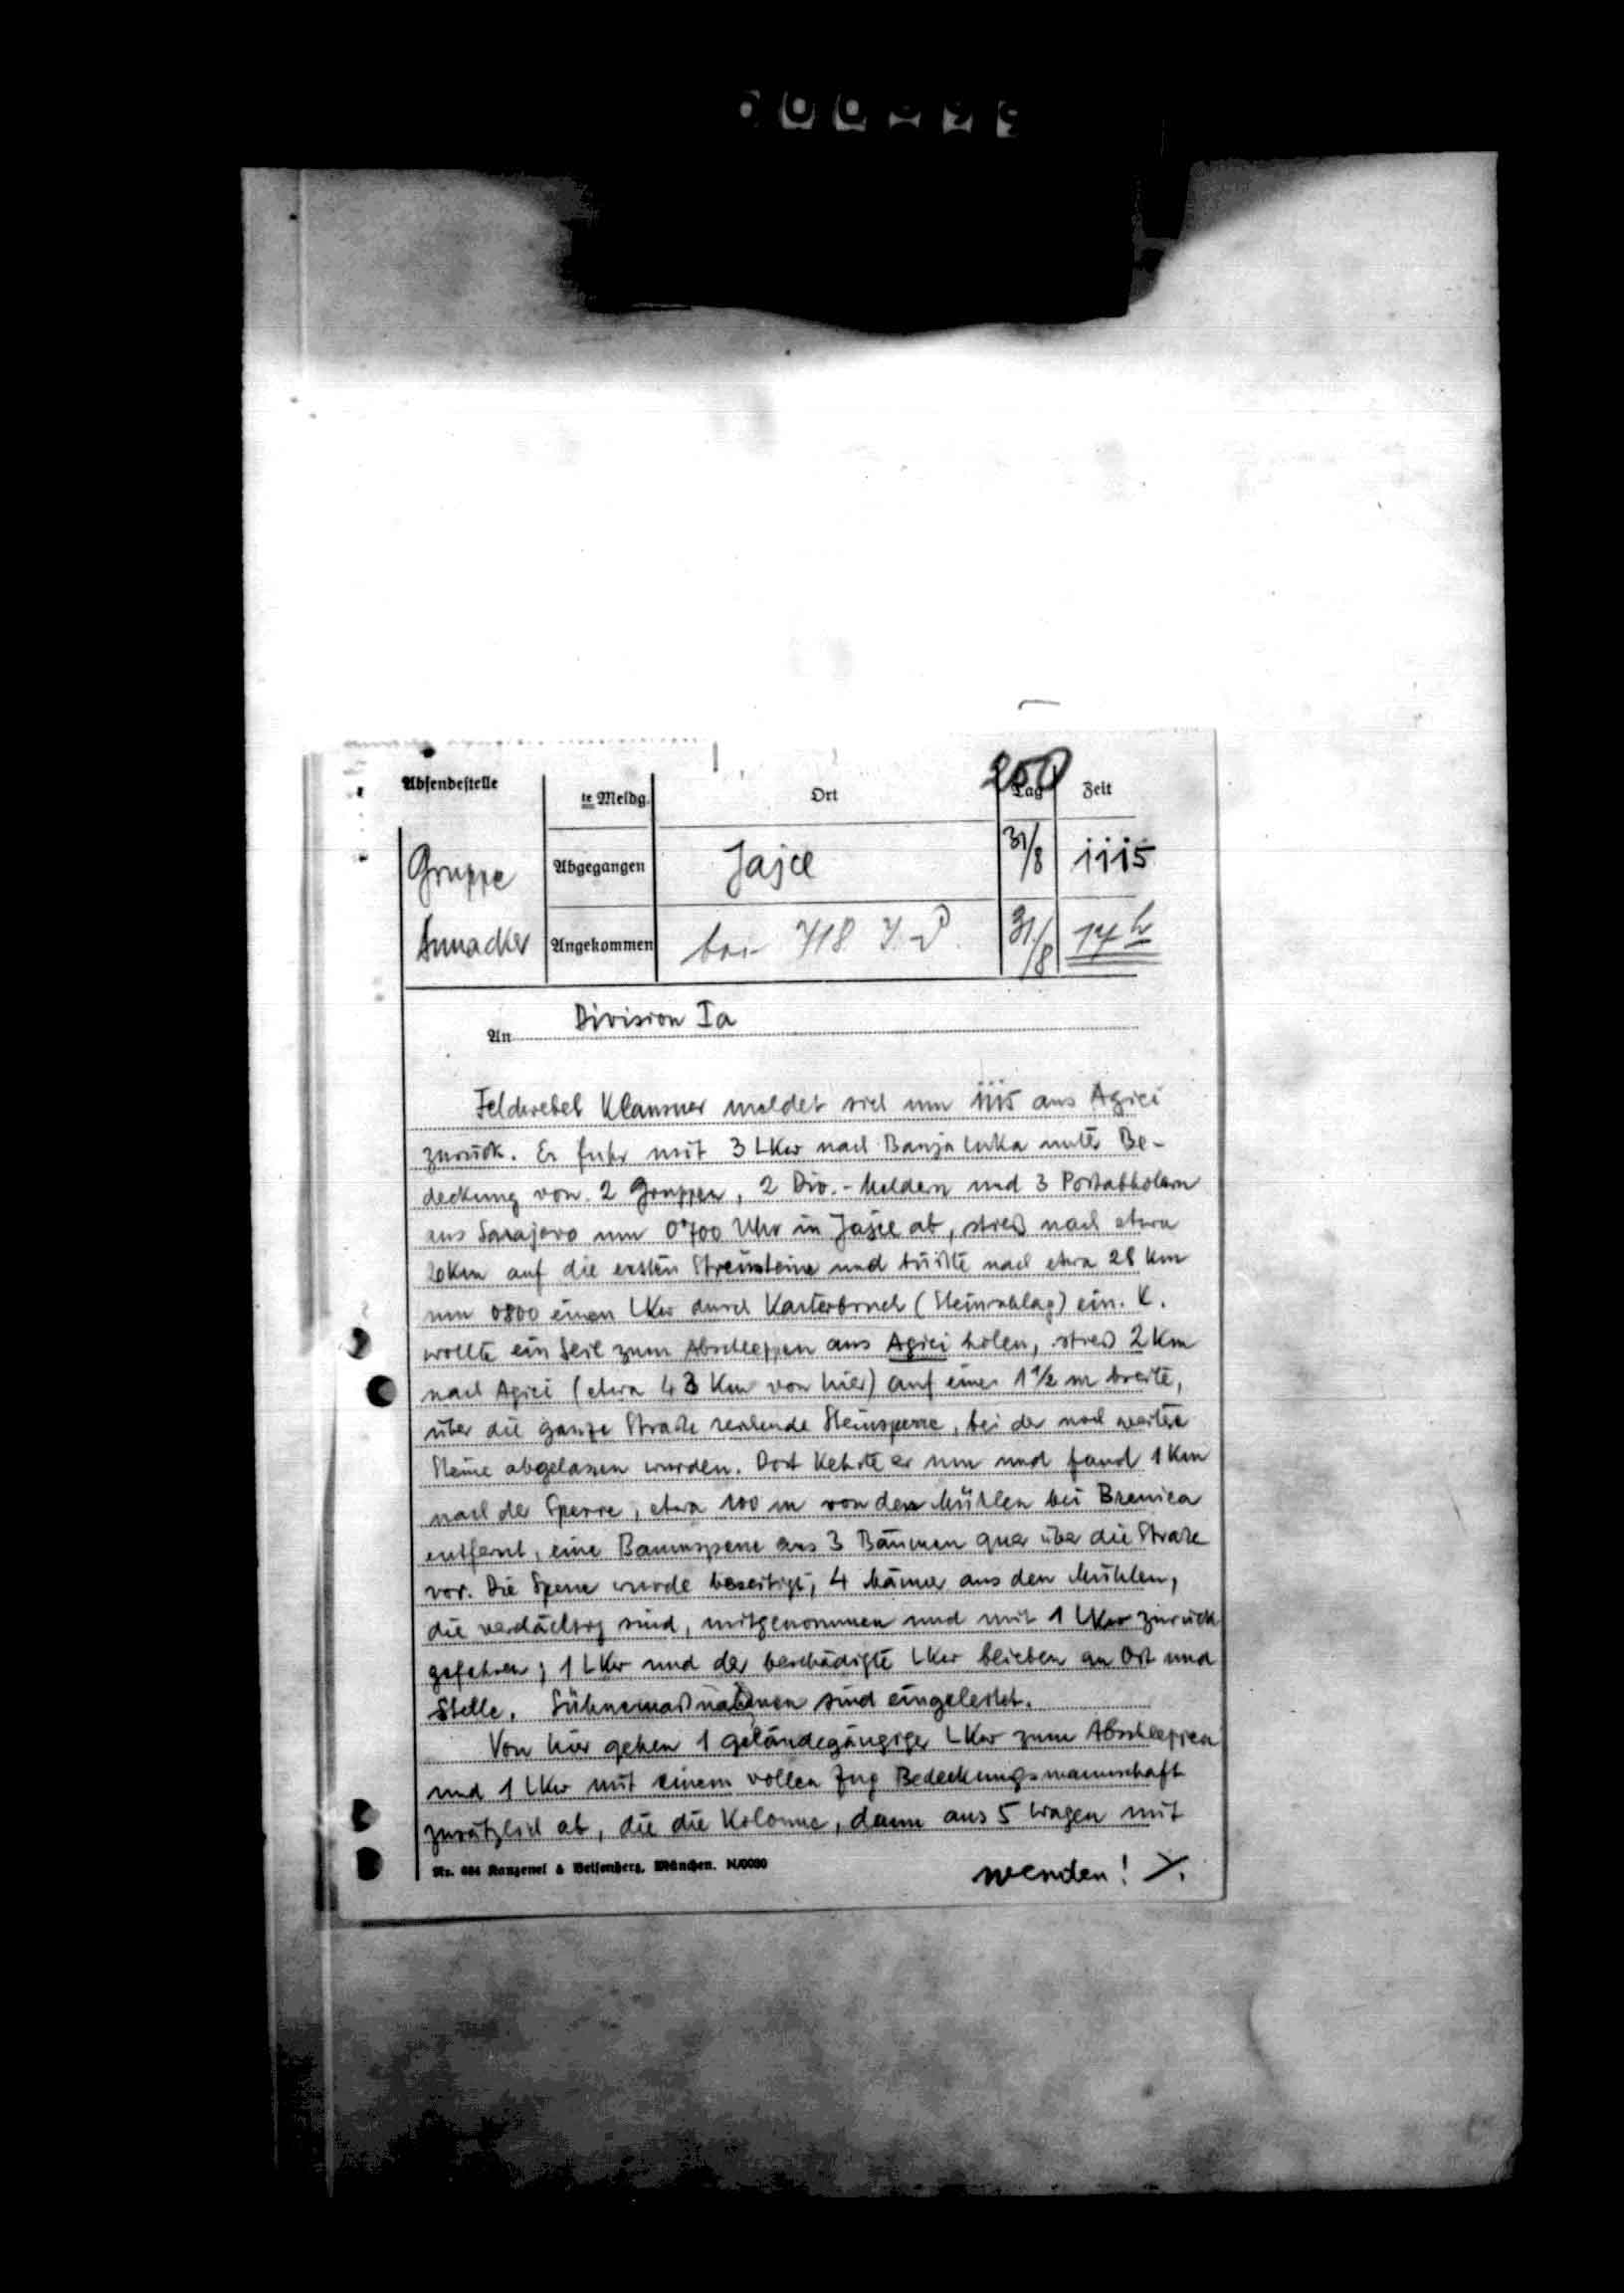 250
Absendestelle te Meldg. Ort Tag Zeit
Gruppe Abgegangen Jajce 31/8 1115
Annacker Angekommen bei 718 I.D. 31./8 14 h
An Division Ia
Feldwebel Klausner meldet sich um 1115 aus Agici
zurück. Er fuhr mit 3 LKw nach Banja Luka unter Be-
deckung von 2 Gruppen, 2 Div.-Meldern und 3 Postabholern
aus Sarajevo um 0700 Uhr in Jajce ab, stieß nach etwa
20 Km auf die ersten Streusteine und büßte nach etwa 28 Km
um 0800 einen LKw durch Kasterbruch (Steinschlag) ein. K.
wollte ein Seil zum Abschleppen aus Agici holen, stieß 2 Km
nach Agici (etwa 43 Km von hier) auf eine 1 1/2 m breite,
über die ganze Straße reichende Steinsperre, bei der noch weitere
Steine abgelassen wurden. Dort kehrte er um und fand 1 Km
nach der Sperre, etwa 100 m von den Mühlen bei Brenica
entfernt, eine Baumsperre aus 3 Bäumen quer über die Straße
vor. Die Sperre wurde beseitigt, 4 Männer aus den Mühlen,
die verdächtig sind, mitgenommen und mit 1 LKw zurück
gefahren; 1 LKw und der beschädigte LKw blieben an Ort und
Stelle. Sühnemaßnahmen sind eingeleitet.
Von hier gehen 1 geländegängiger LKw zum Abschleppen
und 1 LKw mit einem vollen Zug Bedeckungsmannschaft
zusätzlich ab, die die Kolonne, dann aus 5 Wagen mit
wenden!
München.